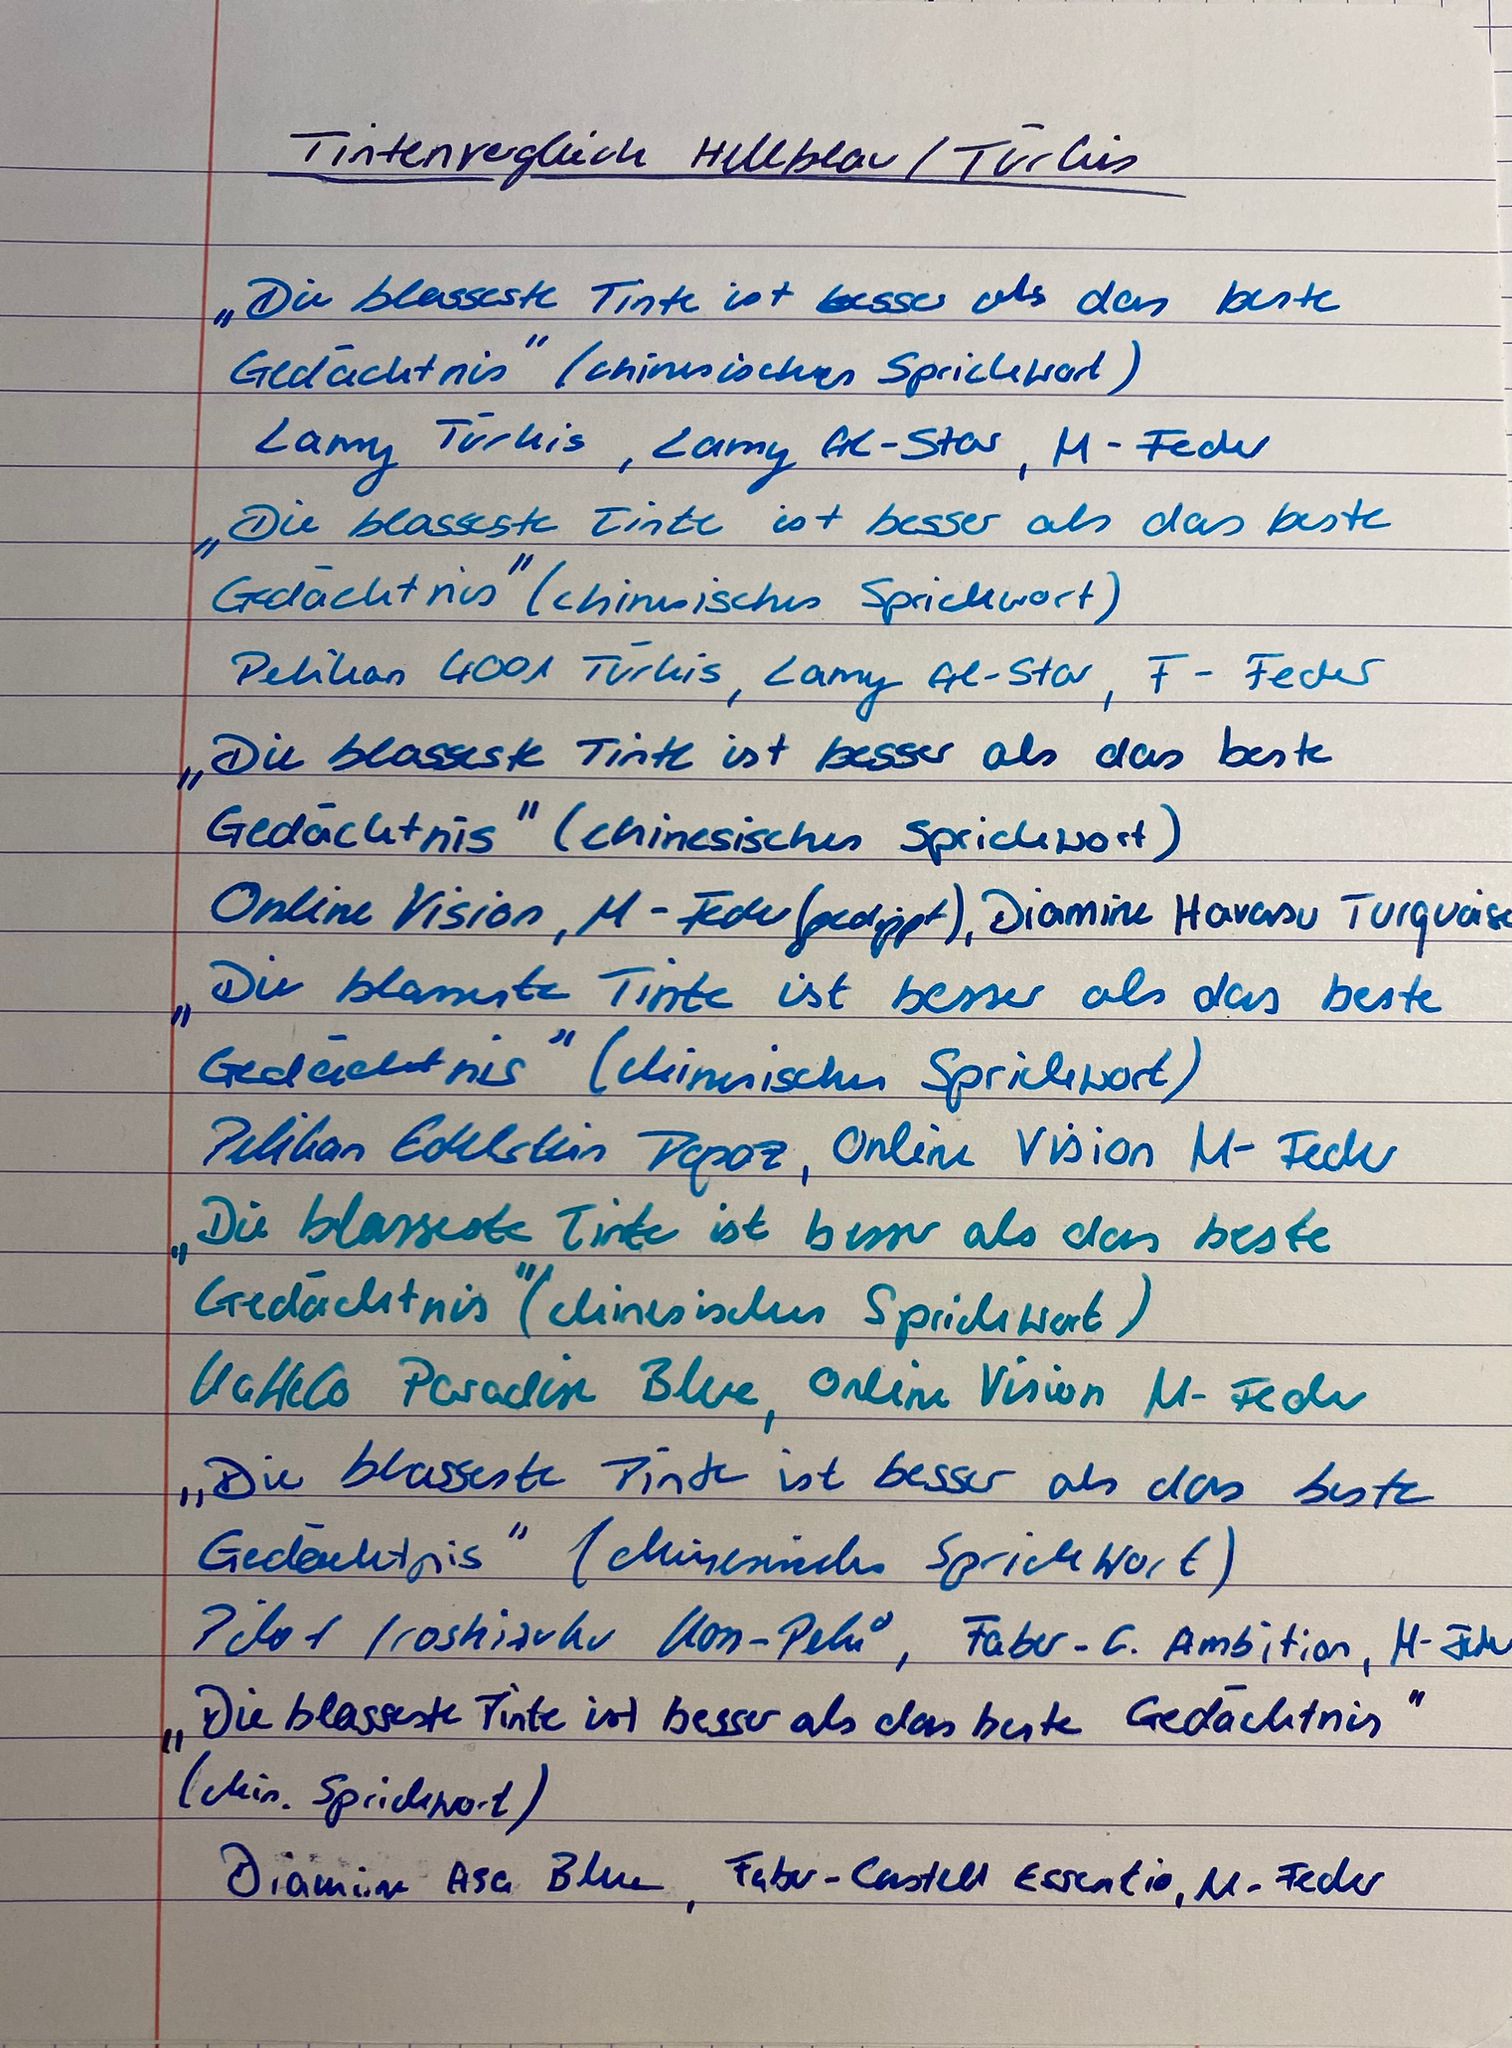 Tintenvergleich Hellblau / Türkis
„Die blasseste Tinte ist besser als das beste
Gedächtnis" (chinesisches Sprichwort)
Lamy Türkis, Lamy Al-Star, M-Feder
„Die blasseste Tinte ist besser als das beste
Gedächtnis" (chinesisches Sprichwort)
Pelikan 4001 Türkis, Lamy Al-Star, F-Feder
„Die blasseste Tinte ist besser als das beste
Gedächtnis" (chinesisches Sprichwort)
Online Vision, M-Feder (gedippt), Diamine Havasu Turquoise
„Die blasseste Tinte ist besser als das beste
Gedächtnis" (chinesisches Sprichwort)
Pelikan Edelstein Topaz, Online Vision M-Feder
„Die blasseste Tinte ist besser als das beste
Gedächtnis" (chinesisches Sprichwort)
KaWeCo Paradise Blue, Online Vision M-Feder
„Die blasseste Tinte ist besser als das beste
Gedächtnis" (chinesisches Sprichwort)
Pilot Iroshizuku Kon-Peki, Faber-C. Ambition, M-Feder
„Die blasseste Tinte ist besser als das beste Gedächtnis"
(chin. Sprichwort)
Diamine Asa Blue, Faber-Castell Essentio, M-Feder